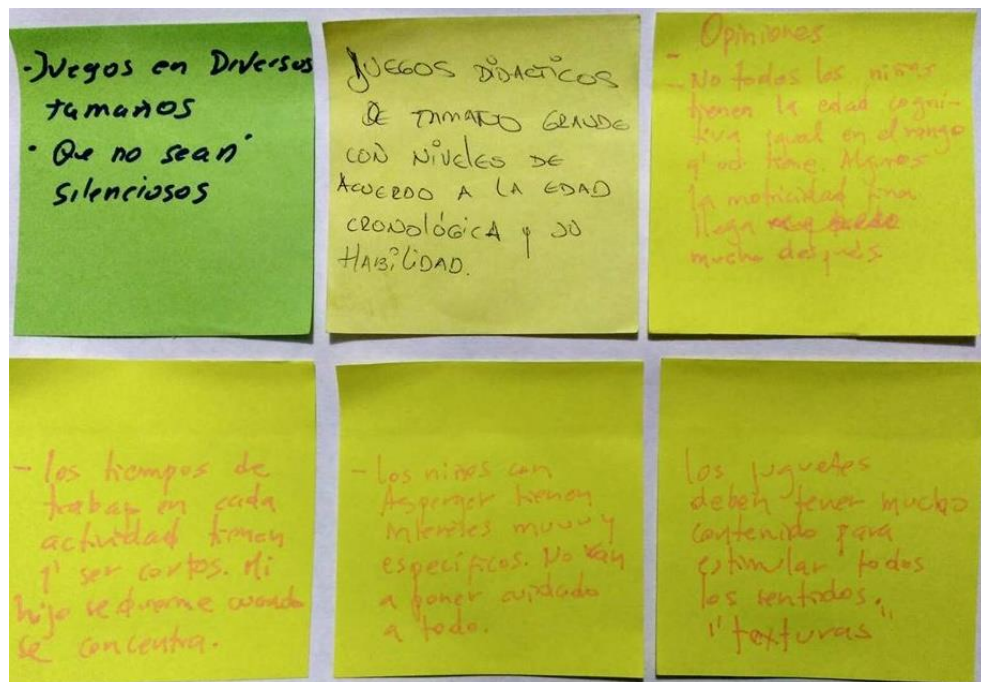 -Juegos en Diversos
tamaños
· Que no sean
silenciosos
JUEGOS DIDACTICOS
DE TAMAÑO GRANDE
CON NIVELES DE
ACUERDO A LA EDAD
CRONOLÓGICA Y SU
HABILIDAD.
Opiniones
- No todos los niños
tienen la edad cogni-
tiva igual en el rango
q' ud tiene. Algunos
la motricidad fina
llega
mucho después
- los tiempos de
trabajo en cada
actividad tienen
q' ser cortos. Mi
hijo se duerme cuando
se concentra.
- los niños con
Asperger tienen
intereses muuuy
específicos. No van
a poner cuidado
a todo.
los juguetes
deben tener mucho
contenido para
estimular todos
los sentidos.
"texturas"